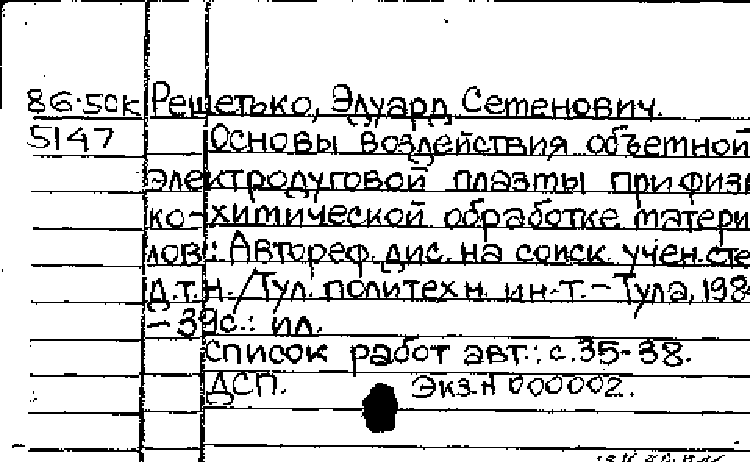 86-5ск Решетько, Эдуард Семенович.
5147 Основы воздействия объемной
электродуговой плазмы при физи
ко-химической обработке матери
лов: Автореф. дис. на соиск. учен. сте
д.т.н. / Тул. политехн. ин-т. - Тула, 198
- 39с.: ил.
Список работ авт.: с. 35-38.
ДСП. Экз. N 000002.